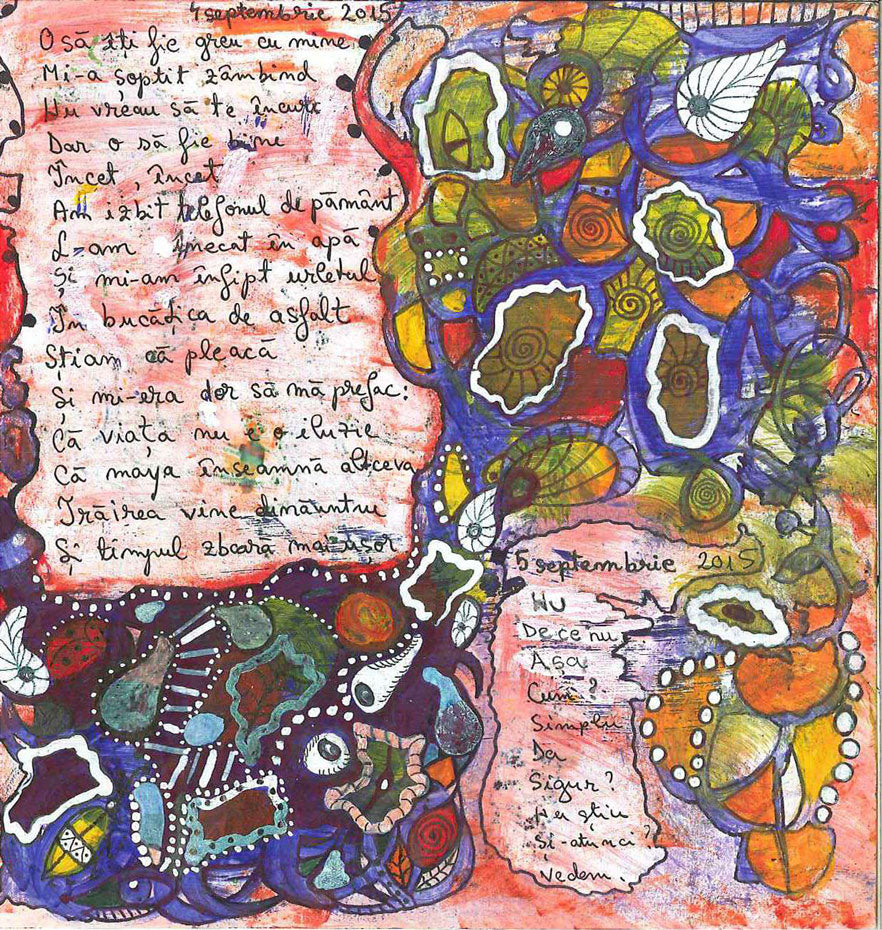 4 septembrie 2015
O să îți fie greu cu mine,
Mi-a șoptit zâmbind
Nu vreau să te încurc
Dar o să fie bine
Încet, încet
Am izbit telefonul de pământ
L-am înecat în apă
Și mi-am înfipt urletul
În bucățica de asfalt
Știam că pleacă
Și mi-era dor să mă prefac:
Că viața nu e o iluzie
Că maya înseamnă altceva
Trăirea vine dinăuntru
Și timpul zboara mai ușor
5 septembrie 2015
Nu
De ce nu
Așa
Cum?
Simplu
Da
Sigur?
Nu știu
Și-atunci?
Vedem.